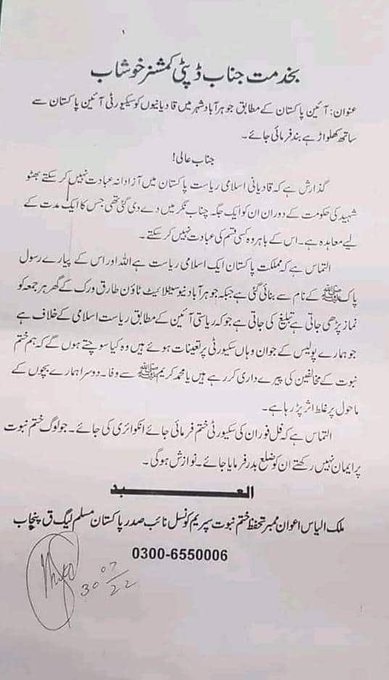 بخدمت جناب ڈپٹی کمشنر خوشاب
عنوان: آئین پاکستان کے مطابق جوہرآباد شہر میں قادیانیوں کو سیکیورٹی آئین پاکستان سے
ساتھ کھلواڑ ہے بند فرمائی جائے۔
جناب عالی!
گذارش ہے کہ قادیانی اسلامی ریاست پاکستان میں آزادانہ عبادت نہیں کر سکتے بھٹو
شہید کی حکومت کے دوران ان کو ایک جگہ چناب نگر میں دے دی گئی تھی جس کا ایک مدت کے
لیے معاہدہ ہے۔ اس کے باہر وہ کسی قسم کی عبادت نہیں کر سکتے۔
التماس ہے کہ مملکت پاکستان ایک اسلامی ریاست ہے اللہ اور اس کے پیارے رسول
پاک ﷺ کے نام سے بنائی گئی ہے جبکہ جوہرآباد نیو سیٹلائیٹ ٹاؤن طارق ورک کے گھر ہر جمعہ کو
نماز پڑھی جاتی ہے تبلیغ کی جاتی ہے جو کہ ریاستی آئین کے مطابق ریاست اسلامی کے خلاف ہے
جو ہمارے پولیس کے جوان وہاں سیکورٹی پر تعینات ہوتے ہیں وہ کیا سوچتے ہوں گے کہ ہم ختم
نبوت کے مخالفین کی پیرے داری کر رہے ہیں یا محمد کریم ﷺ سے وفا۔ دوسرا ہمارے بچوں کے
ماحول پر غلط اثر پڑ رہا ہے۔
التماس ہے کہ فل فور ان کی سکیورٹی ختم فرمائی جائے انکوائری کی جائے۔ جو لوگ ختم نبوت
پر ایمان نہیں رکھتے ان کو ضلع بدر فرمایا جائے۔ نوازش ہوگی۔
العبد
ملک الیاس اعوان ممبر تحفظ ختم نبوت سپریم کونسل نائب صدر پاکستان مسلم لیگ ق پنجاب
0300-6550006
30 07/22